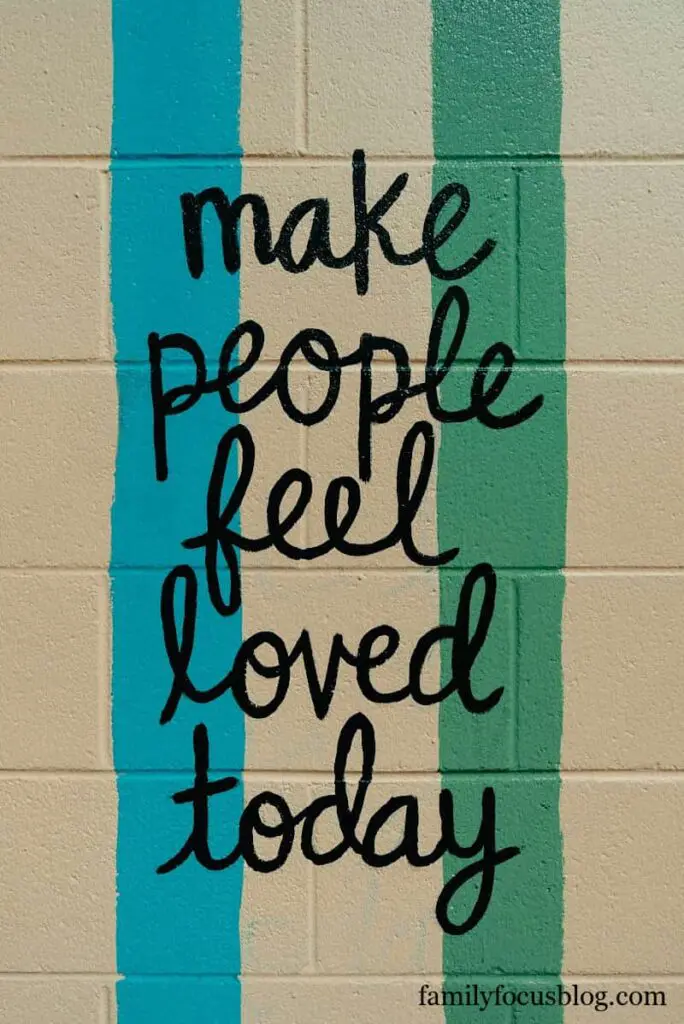 make
people
feel
loved
today
familyfocusblog.com